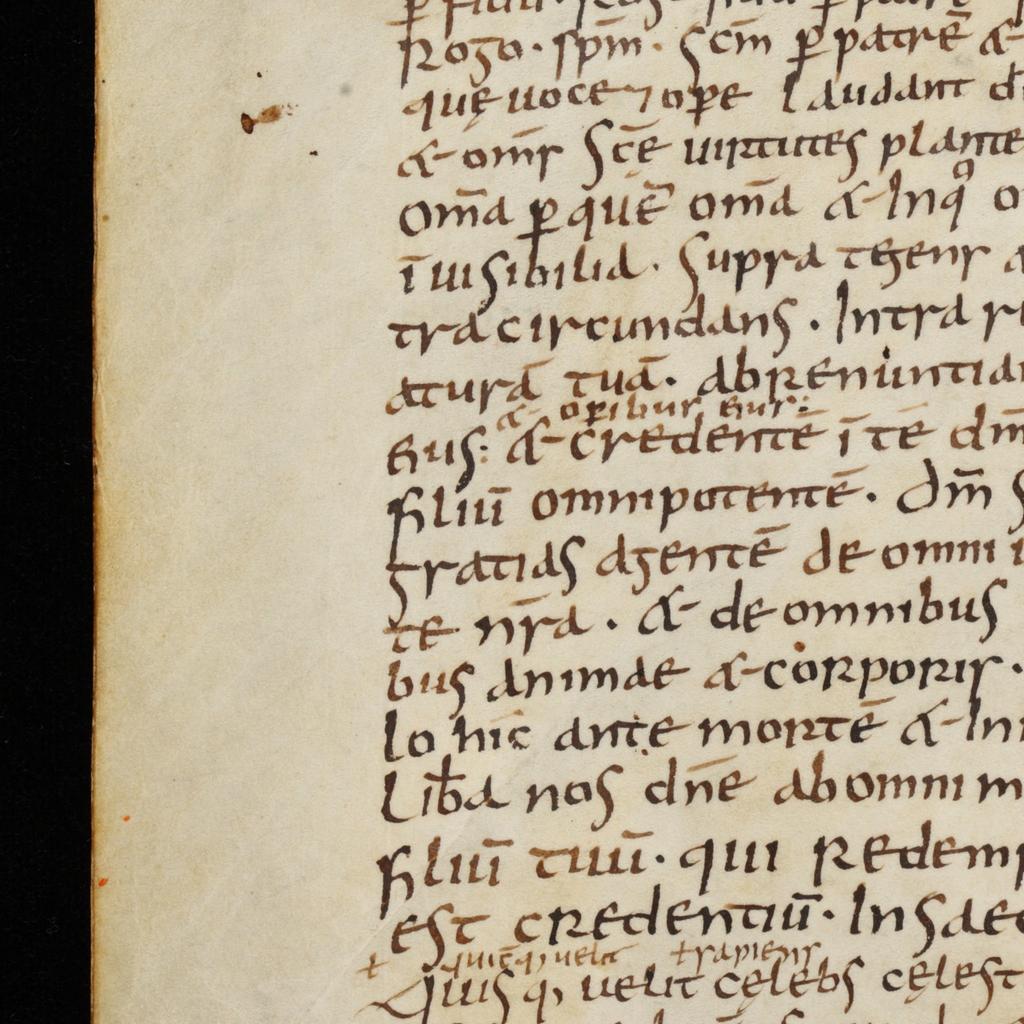 Rogo · spm̄ · Scm̄ ꝑ patrē &
quę uoce ⁊ oꝑe laudant
& om̄s Scē uirtutes plante
Om̄a ꝑ quē om̄a & Inqͦ
īuisibilia · Supra tegens
tra circundans · Intra
aturā tuā · abrenuntia
& oꝑibus eius:
eius: & credentē ī tē dm̄
filiū omnipotentē · Dm̄
gratias agentē de omni
te nr̄a · & de omnibus
bus animae & corporis ·
lo hic ante mortē & In
Lib̄a nos dn̄e ab omni m
filiū tuū · qui Redem
est credentiū · In saec
+ quicq; uelit +sapiens
Quisq; uelit cęlebs cęlest